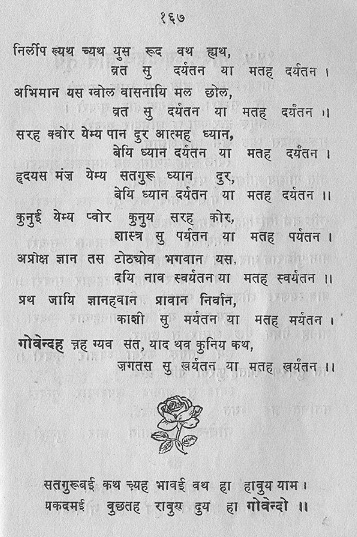 १६७
निर्लीप रूयथ च्यथ युस रूद वथ ह्यथ,
व्रत सु दर्यतन या मतह दर्यतन ।
अभिमान यस ग्वोल वासनायि मल छोल,
व्रत सु दर्यतन या मतह दर्यतन ।।
सरह क्वोर येम्य पान दुर आत्मह ध्यान,
बेयि ध्यान दर्यतन या मतह दर्यतन ।
हृदयस मंज़ येम्य सतगुरू ध्यान दुर,
बेयि ध्यान दर्यतन या मतह दर्यतन ।।
कुनुई येम्य प्वोर कुनुय सरह कोर,
शास्त्र सु पर्यतन या मतह पर्यतन ।
अप्रोक्ष ज्ञान तस टोठ्योव भगवान यस,
दयि नाव स्वर्यतन या मतह स्वर्यतन ।।
प्रथ जायि ज्ञानहवान प्रावान निर्वान,
काशी सु मर्यतन या मतह मर्यतन ।
गोवेन्दह ग्यव सत, याद थव कुनिय कथ,
जगतस सु खर्यतन या मतह खर्यतन ।।
सतगुरूबई कथ च्यह भावई वथ हा हावुय याम ।
यकदमई वुछतह रावुय दुय हा गोवेन्दो ।।